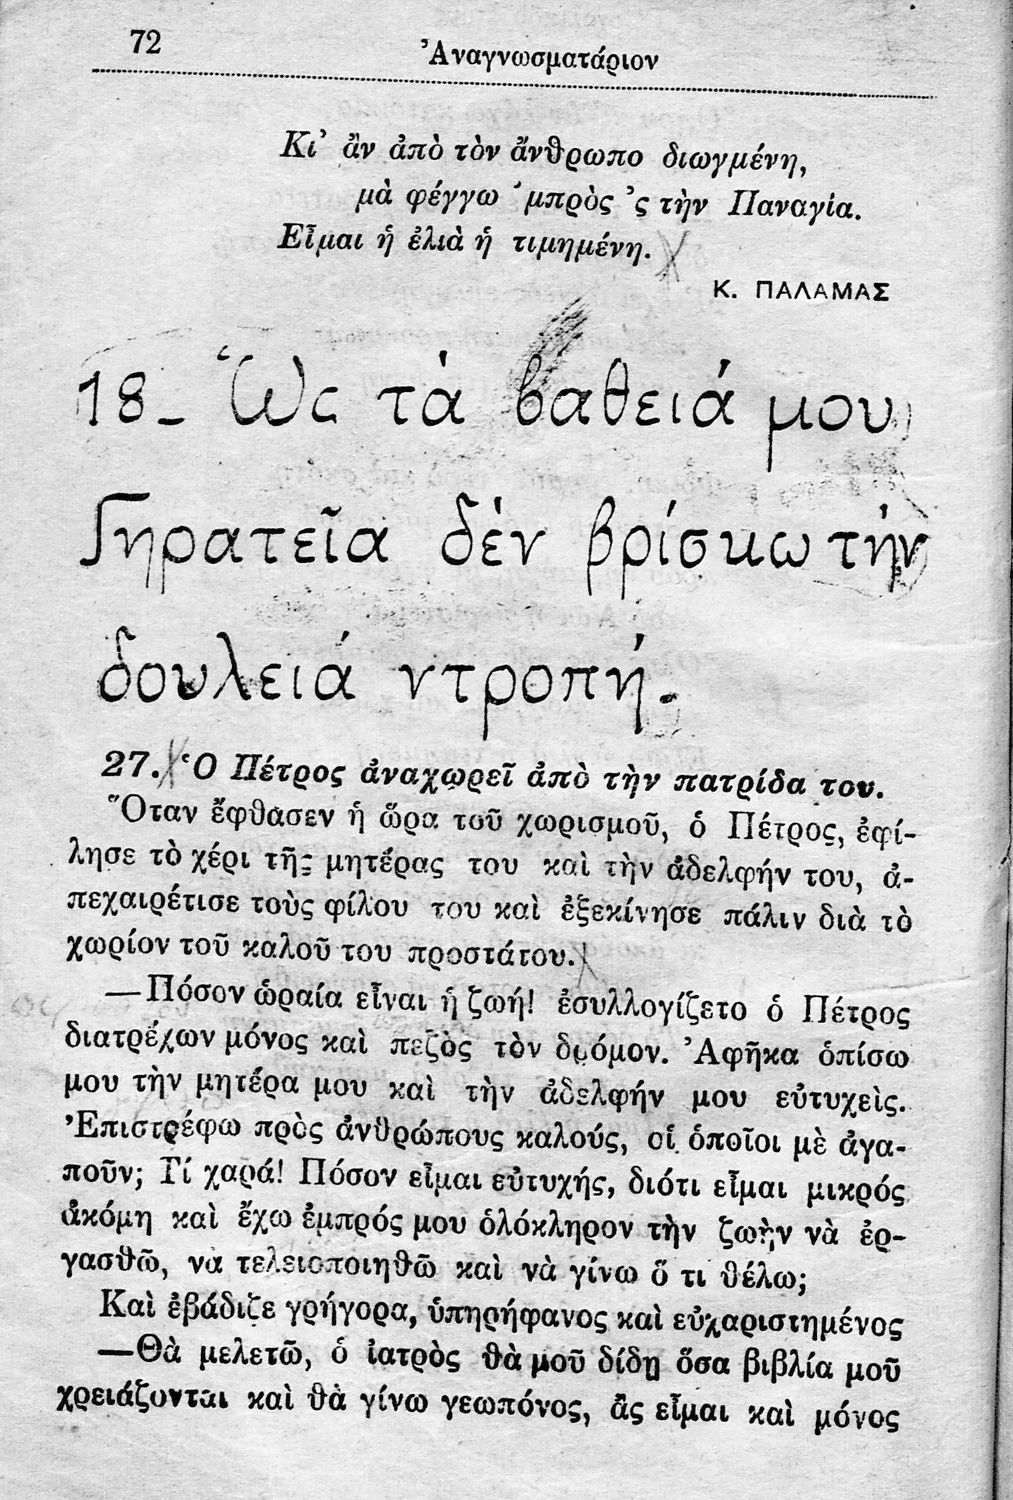 72
Ἀναγνωσματάριον
Κι’ ἂν ἀπὸ τὸν ἄνθρωπο διωγμένη,
μὰ φέγγω ’μπρὸς ’ς τὴν Παναγία.
Εἶμαι ἡ ἐλιὰ ἡ τιμημένη.
Κ. ΠΑΛΑΜΑΣ
18_ Ὥς τά βαθειά μου
Γηρατεῖα δέν βρίσκω τήν
δουλειά ντροπή.
27. Ὁ Πέτρος ἀναχωρεῖ ἀπὸ τὴν πατρίδα του.
Ὅταν ἔφθασεν ἡ ὥρα τοῦ χωρισμοῦ, ὁ Πέτρος, ἐφί-
λησε τὸ χέρι τῆς μητέρας του καὶ τὴν ἀδελφήν του, ἀ-
πεχαιρέτισε τοὺς φίλου του καὶ ἐξεκίνησε πάλιν διὰ τὸ
χωρίον τοῦ καλοῦ του προστάτου.
—Πόσον ὡραία εἶναι ἡ ζωή! ἐσυλλογίζετο ὁ Πέτρος
διατρέχων μόνος καὶ πεζὸς τὸν δρόμον. Ἀφῆκα ὀπίσω
μου τὴν μητέρα μου καὶ τὴν ἀδελφήν μου εὐτυχεὶς.
Ἐπιστρέφω πρὸς ἀνθρώπους καλούς, οἱ ὁποῖοι μὲ ἀγα-
ποῦν; Τί χαρά! Πόσον εἶμαι εὐτυχής, διότι εἶμαι μικρός
ἀκόμη καὶ ἔχω ἐμπρός μου ὁλόκληρον τὴν ζωὴν νὰ ἐρ-
γασθῶ, νὰ τελειοποιηθῶ καὶ νὰ γίνω ὅ τι θέλω;
Καὶ ἐβάδιζε γρήγορα, ὑπηρήφανος καὶ εὐχαριστημένος
—Θὰ μελετῶ, ὁ ἰατρὸς θὰ μοῦ δίδῃ ὅσα βιβλία μοῦ
χρειάζονται καὶ θὰ γίνω γεωπόνος, ἂς εἶμαι καὶ μόνος